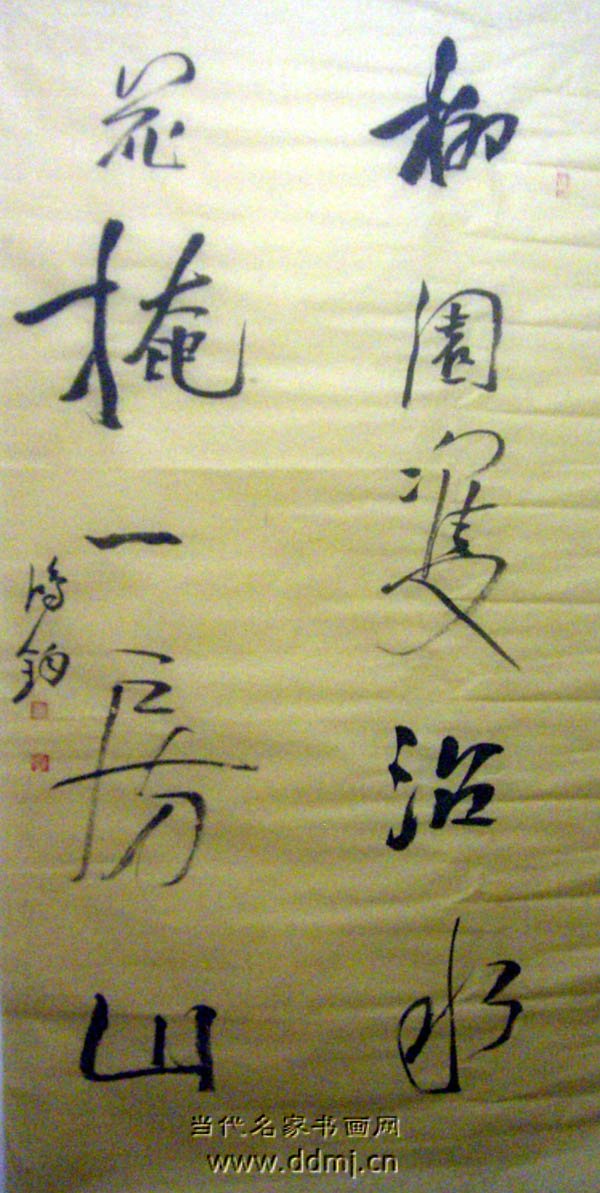 柳圍雙沼水
花掩一房山
鴻鈞
当代名家书画网
www.ddmj.cn